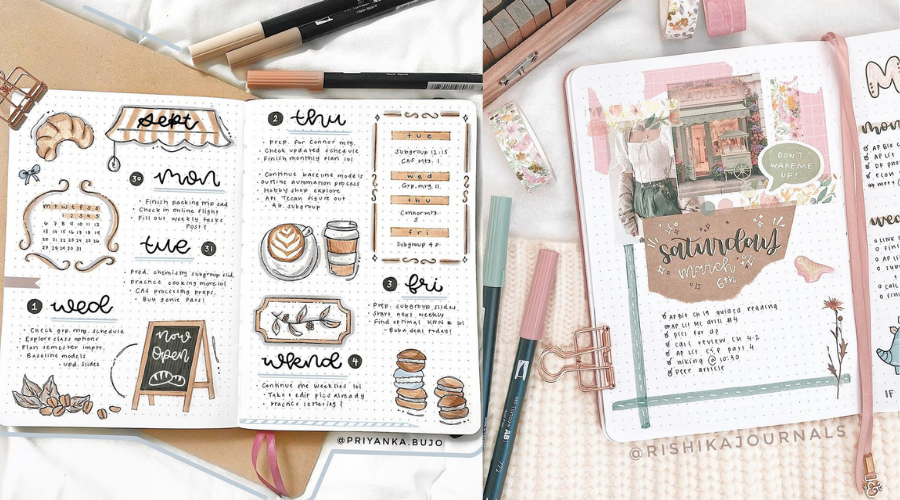 sept
30 mon
Finish packing mid sad
Check in online flight
Fill out weekly tasks
Post?
m t w t f s s
tue 31
Pred. chemistry subgroup slid.
Practice cooking more lol
CAS processing preps.
Bub genie pass!
1 wed
Check grp. mtg. schedule
Explore class options
Plan semester impor.
Baseline models
upd. slides
now
Open
2 thu
Prep. for Connor mtg.
Check updated schedule
Finish monthly plan lol
Continue baseline models
outline automation process
Hobby shop explore
Api Tecan figure out
4b. subgroup
tue
Subgroup 12:15
CAS mtg. 1
wed
Grp. mtg. 11
thu
Connor mtg.
fri
Subgroup 4 p.
3 fri
Prep. subgroup slides
Start next weekly
Find optimal
lol
Boba deal today!
wkend 4
Continue the weeklies lol
Take + edit pics already
Practice lettering?
@PRIYANKA.BUJO
DON'T
WAKE ME
UP!
saturday
march
6th
apbio ch 19 guided reading
AP Lit MC drill #4
pics for dp
call review ch 4-2
AP lit CSP part 4
hiking @ 10:30
peer article
@RISHIKAJOURNALS
M
mon
AP Bio
AP Lit
wed
IF